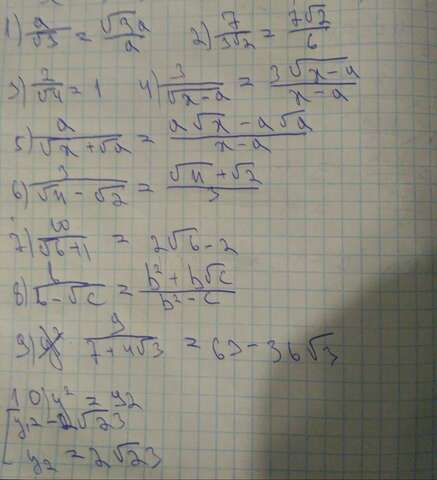 1) a/√3 = √3a/a 2) 7/3√2 = 7√2/6
3) 2/√4 = 1 4) 3/√x-a = 3√x-a/x-a
5) a/√x+√a = a√x-a√a/x-a
6) 3/√11-√2 = √11+√2/3
7) 10/√6+1 = 2√6-2
8) b/b-√c = b²+b√c/b²-c
9) 9/7+4√3 = 63-36√3
10) y² = 92
y₁ = -2√23
y₂ = 2√23